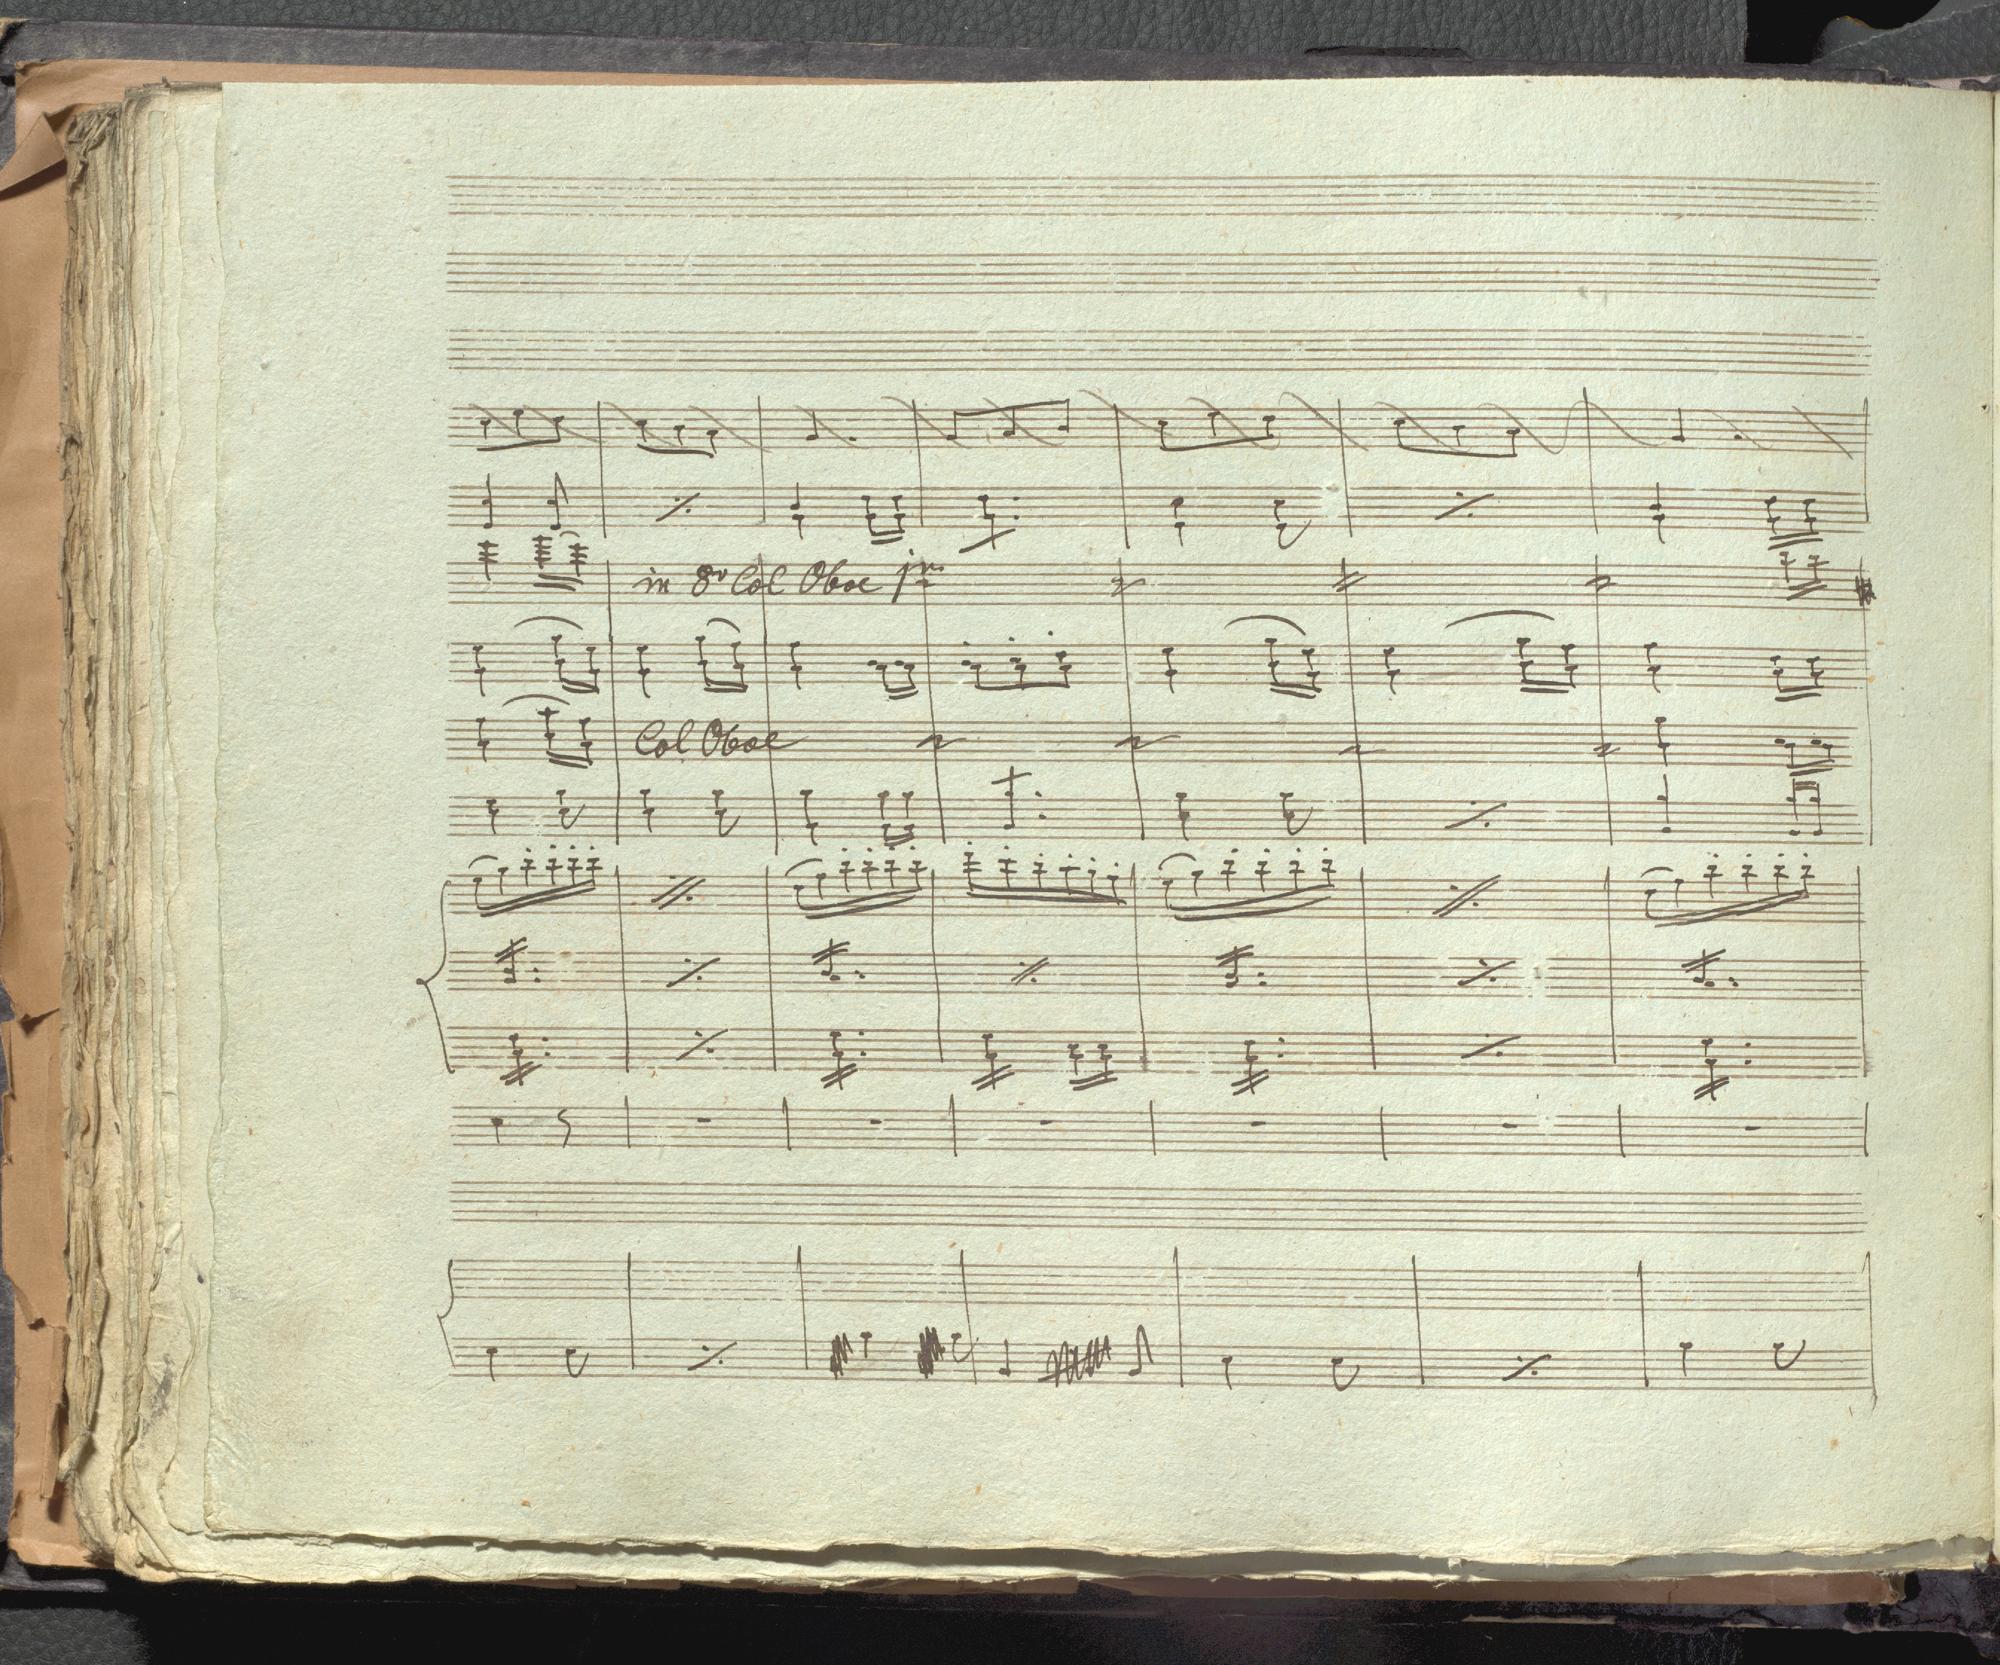 in 8v Col Oboe jmo
Col Oboe